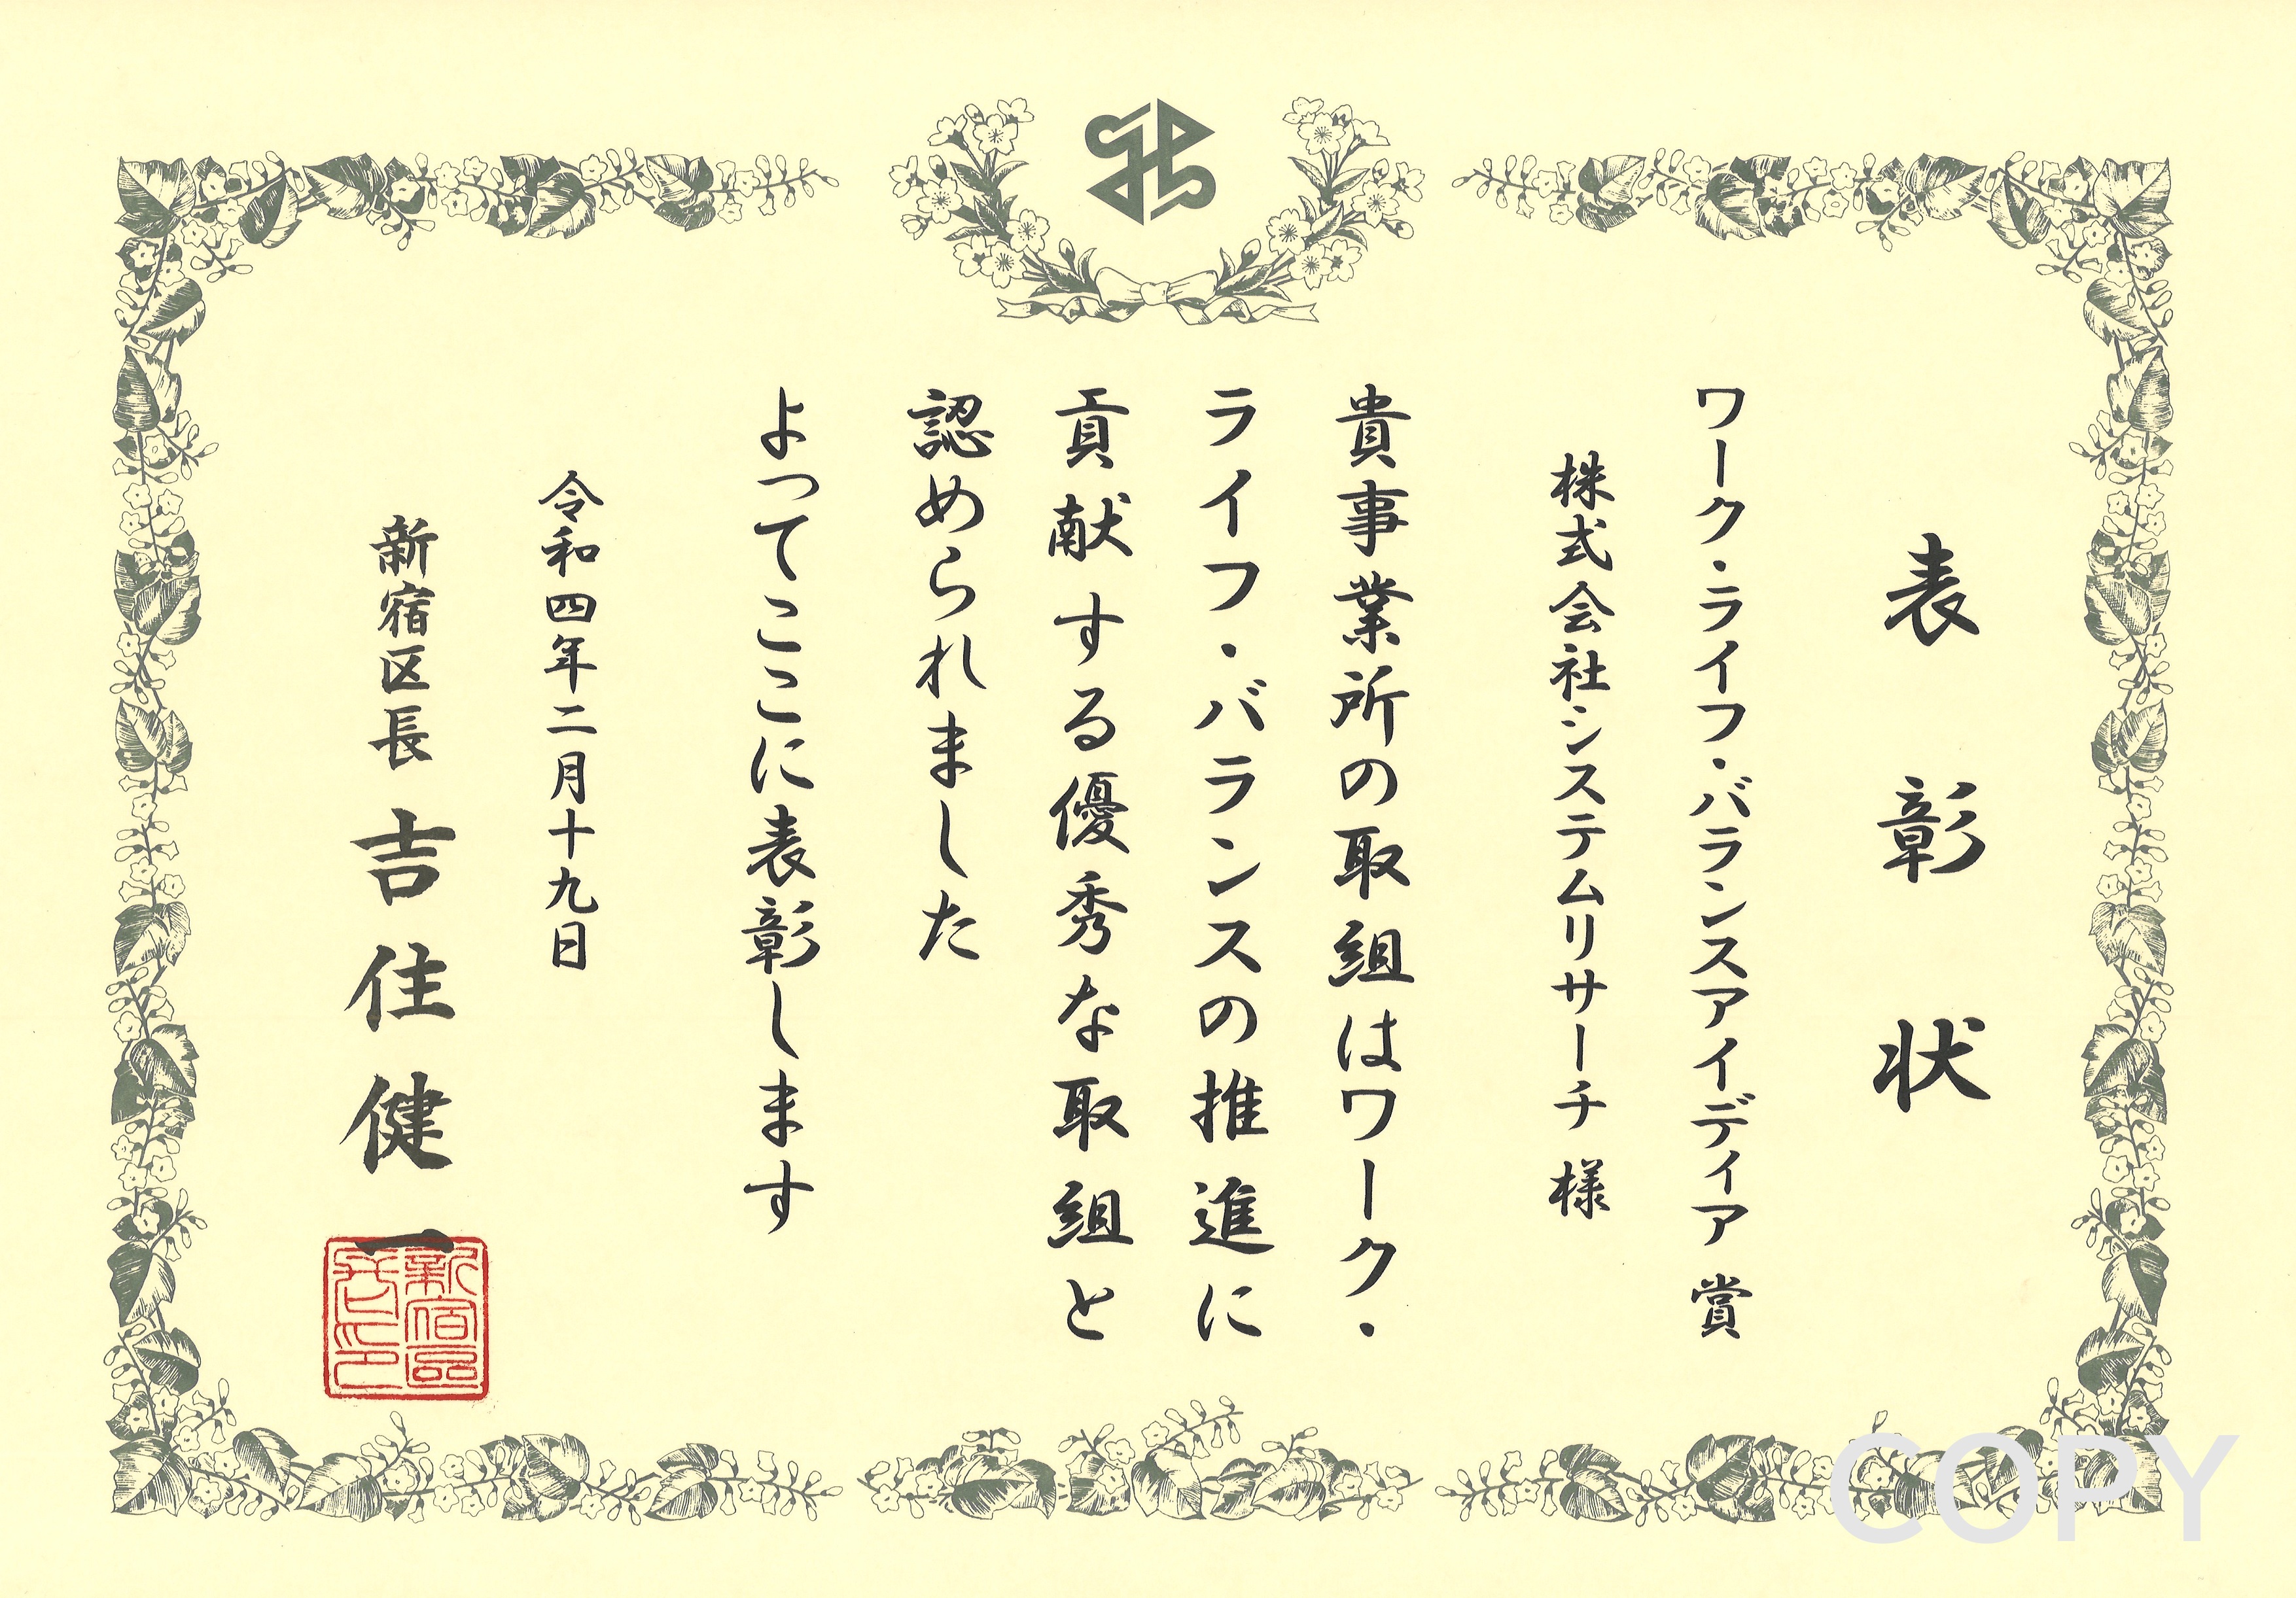 表彰状
ワーク・ライフ・バランスアイディア賞
株式会社システムリサーチ 様
貴事業所の取組はワーク・
ライフ・バランスの推進に
貢献する優秀な取組と
認められました
よってここに表彰します
令和四年二月十九日
新宿区長 吉住健一
新宿区
長之印
COPY